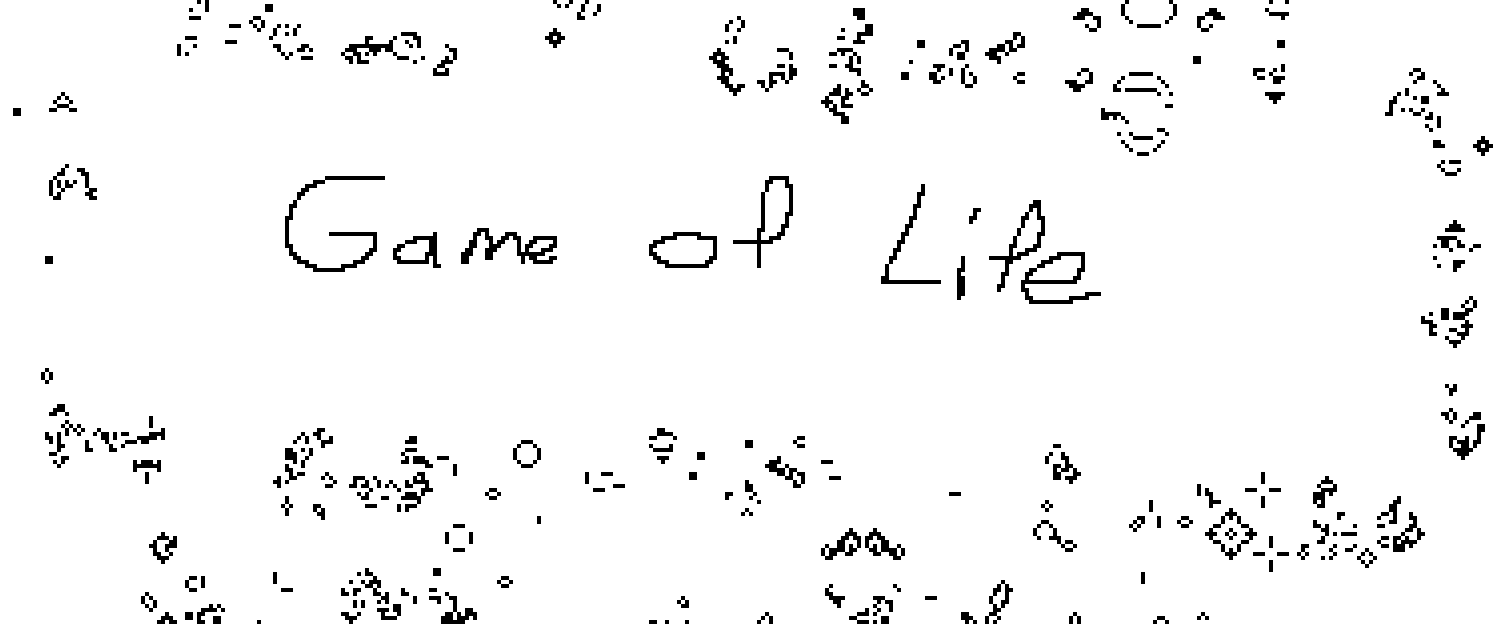 Game of Life